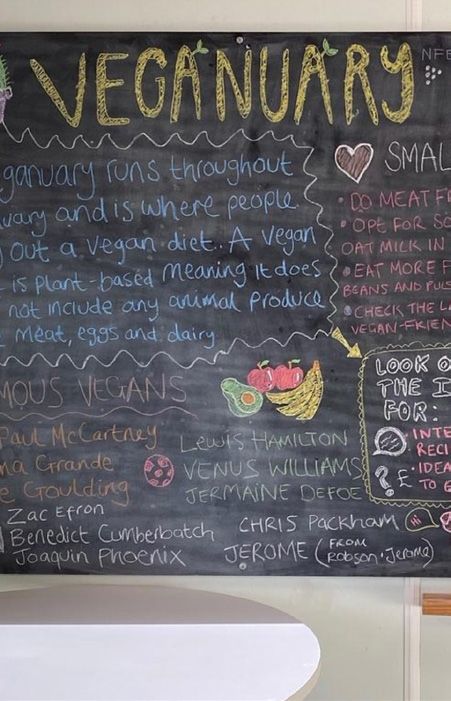 VEGANUARY
NFE
ganuary runs throughout
uary and is where people
out a vegan diet. A vegan
is plant-based meaning it does
not include any animal produce
meat, eggs and dairy
SMAL
• DO MEAT FR
• OPT FOR SO
OAT MILK IN
• EAT MORE F
BEANS AND PULS
• CHECK THE LA
VEGAN-FRIEN
MOUS VEGANS
Paul McCartney
na Grande
e Goulding
Zac Efron
Benedict Cumberbatch
Joaquin Phoenix
LEWIS HAMILTON
VENUS WILLIAMS
JERMAINE DEFOE
CHRIS PACKHAM
Hi
JEROME (FROM
Robson•Jerome)
LOOK O
THE I
FOR:
• INTE
RECI
• IDEA
TO E
? £